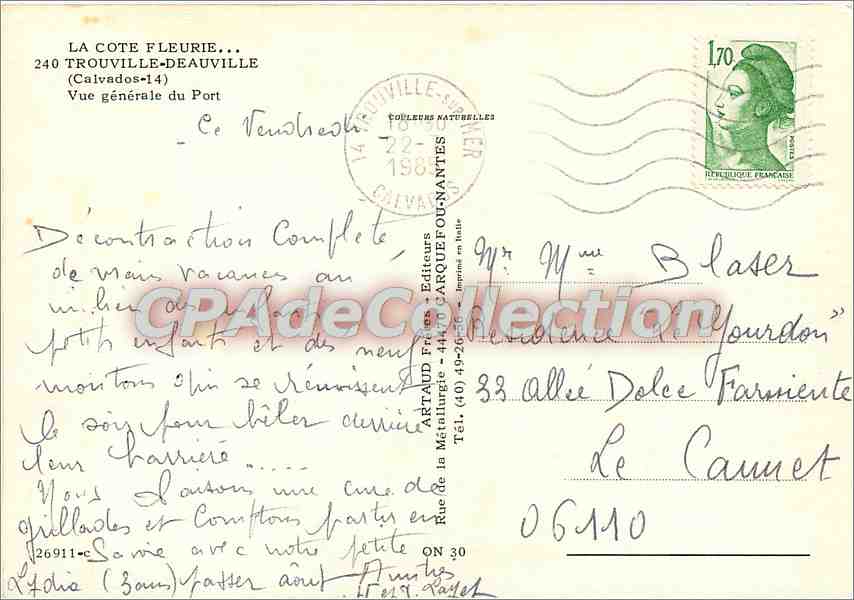 LA COTE FLEURIE...
240 TROUVILLE-DEAUVILLE
(Calvados-14)
Vue générale du Port
Ce Vendredi
COULEURS NATURELLES
14 TROUVILLE-sur-MER
18-30
22-
1985
CALVADOS
1,70
POSTES
REPUBLIQUE FRANÇAISE
Décontraction Complète,
de vraies vacances au
milieu des enfants
petits enfants et des neuf
moutons qui se réunissent
le soir pour bêler derrière
leur barrière.....
Nous faisons une cure de
grillades et Comptons partir en
Savoie avec notre petite
Lydia (3 ans) passer août
Amitiés
26911-c
ON 30
ARTAUD Frères - Editeurs
Rue de la Métallurgie - 44470 CARQUEFOU-NANTES
Tél. (40) 49-26-56 - Imprimé en Italie
Mr Mme Blaser
Résidence "le Gourdon"
33 Allée Dolce Farniente
Le Cannet
06110
CPAdeCollection